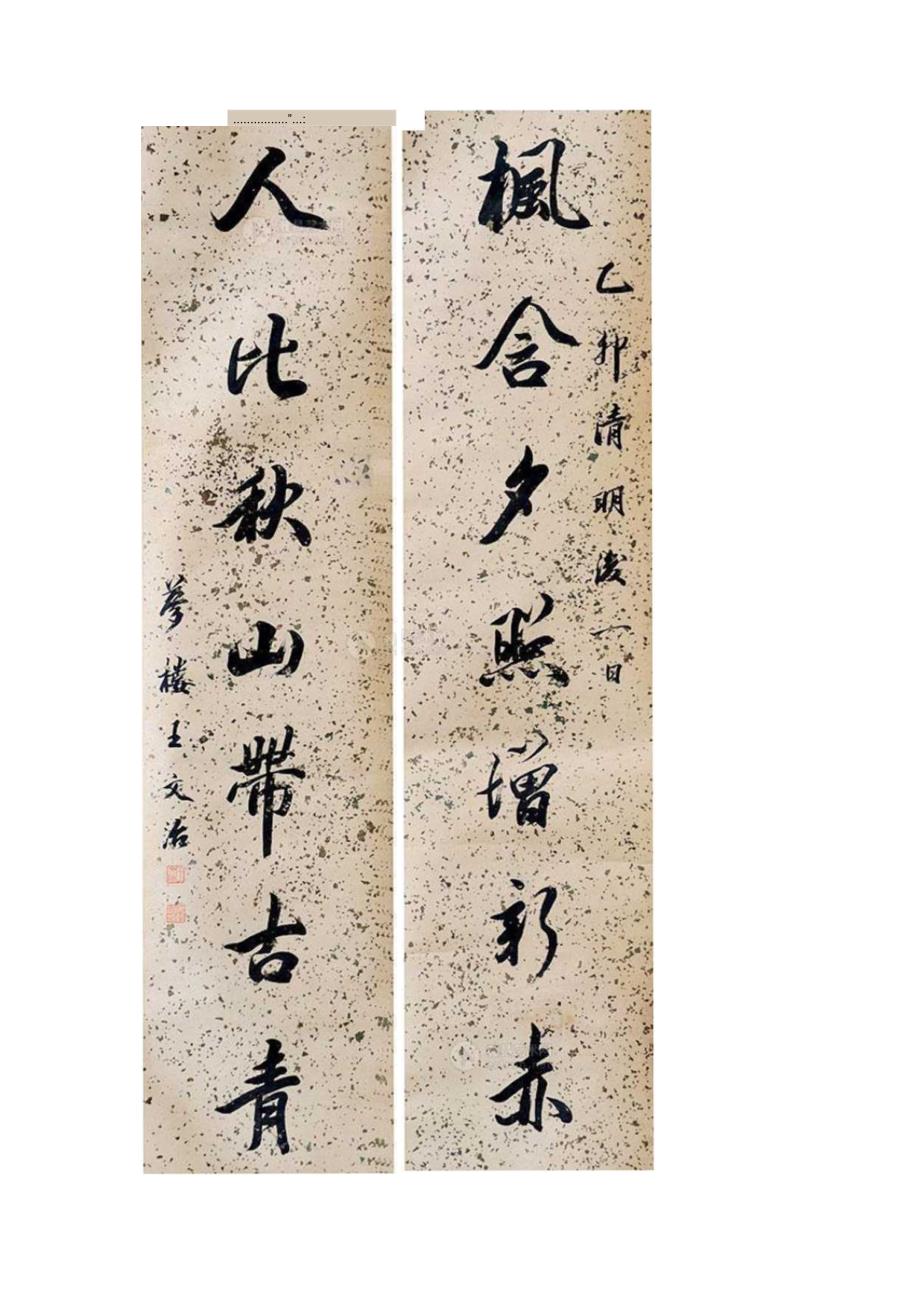 楓含夕照增新赤
乙卯清明後一日
人比秋山帶古青
夢樓王文治